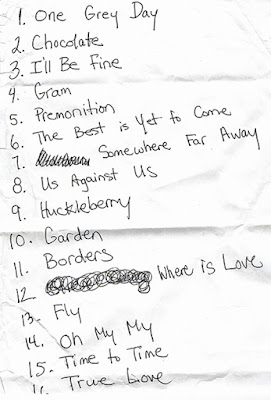 1. One Grey Day
2. Chocolate
3. I'll Be Fine
4. Gram
5. Premonition
6. The Best is Yet to Come
7. Somewhere Far Away
8. Us Against Us
9. Huckleberry
10. Garden
11. Borders
12. Where is Love
13. Fly
14. Oh My My
15. Time to Time
16. True Love